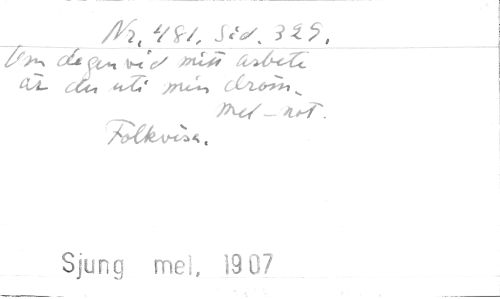 Nr. 481. Sid. 329.
Om dagen vid mitt arbete
är du uti min dröm.
Mel-not.
Folkvisa.
Sjung mel, 1907